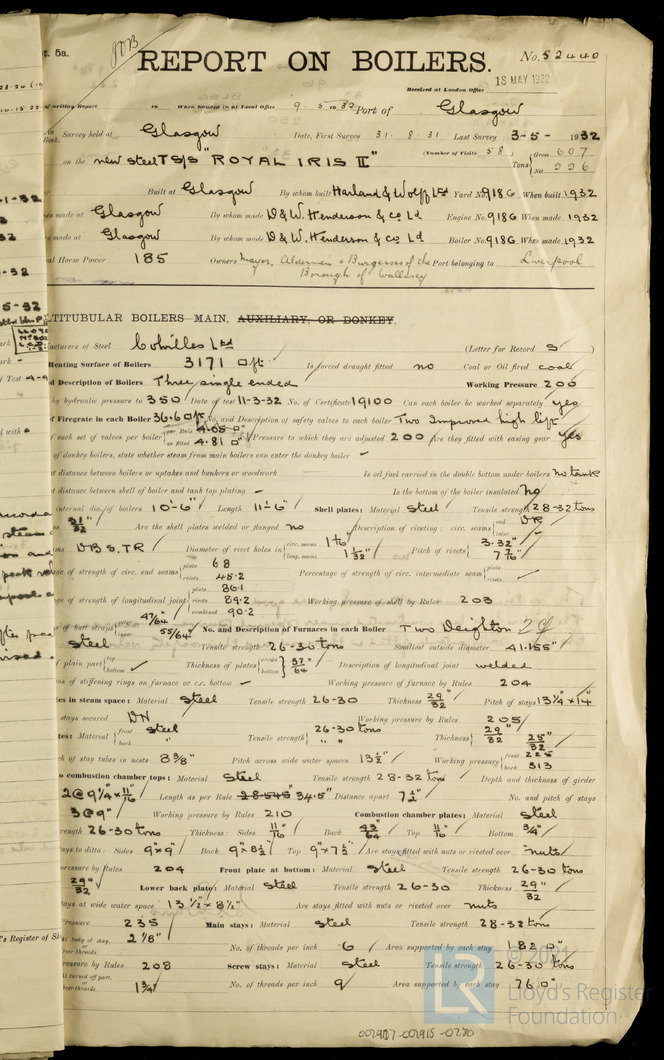 t. 5a.
REPORT ON BOILERS.
No. 52440
Received at London Office
18 MAY 1932
of writing Report 19 When handed in at Local Office 9.5.1932 Port of Glasgow
Survey held at Glasgow Date, First Survey 31.8.31 Last Survey 3-5-1932
Book. (Number of Visits 58) Gross 607
on the new steel TSS "ROYAL IRIS II" Tons Net 226
Built at Glasgow By whom built Harland & Wolff Ltd Yard No. 918G When built 1932
made at Glasgow By whom made D & W. Henderson & Co Ld Engine No. 918G When made 1932
made at Glasgow By whom made D & W. Henderson & Co Ld Boiler No. 918G When made 1932
Horse Power 185 Owners Mayor, Aldermen & Burgesses of the Borough of Wallasey Port belonging to Liverpool
LTITUBULAR BOILERS MAIN, AUXILIARY, OR DONKEY.
facturers of Steel Colvilles Ltd (Letter for Record S)
Heating Surface of Boilers 3171 □ft Is forced draught fitted no Coal or Oil fired coal
d Description of Boilers Three single ended Working Pressure 200
by hydraulic pressure to 350 Date of test 11-3-32 No. of Certificate 19100 Can each boiler be worked separately yes
of Firegrate in each Boiler 36.6 □ft No. and Description of safety valves to each boiler Two Improved high lift
of each set of valves per boiler per Rule 4.65 □" as fitted 4.81 □" Pressure to which they are adjusted 200 Are they fitted with easing gear yes
of donkey boilers, state whether steam from main boilers can enter the donkey boiler -
st distance between boilers or uptakes and bunkers or woodwork Is oil fuel carried in the double bottom under boilers no tank
st distance between shell of boiler and tank top plating - Is the bottom of the boiler insulated no
internal dia. of boilers 10'-6" Length 11'-6" Shell plates: Material Steel Tensile strength 28-32 tons
31/32 Are the shell plates welded or flanged no Description of riveting: circ. seams end DR inter. -
DBS.TR Diameter of rivet holes in circ. seams 1 1/16" long. seams 1 1/32" Pitch of rivets 3.32" 7 7/16"
ge of strength of circ. end seams plate 68 rivets 45.2 Percentage of strength of circ. intermediate seam plate rivets
ge of strength of longitudinal joint plate 86.1 rivets 89.2 combined 90.2 Working pressure of shell by Rules 203
47/64" 55/64" No. and Description of Furnaces in each Boiler Two Deighton
Steel Tensile strength 26-30 tons Smallest outside diameter 41.155"
plain part top bottom Thickness of plates crown bottom 37/64" Description of longitudinal joint welded
ns of stiffening rings on furnace or c.c. bottom - Working pressure of furnace by Rules 204
es in steam space: Material Steel Tensile strength 26-30 Thickness 29/32" Pitch of stays 13 1/4" x 14"
stays secured DN Working pressure by Rules 205
tes: Material front Steel back " Tensile strength 26-30 tons " " Thickness 29/32" 25/32"
ch of stay tubes in nests 8 3/8" Pitch across wide water spaces 13 1/2" Working pressure front 225 back 313
o combustion chamber tops: Material Steel Tensile strength 28-32 tons Depth and thickness of girder
2@9 1/4" x 11/16" Length as per Rule 28.545 34.5" Distance apart 7 1/2" No. and pitch of stays
3@9" Working pressure by Rules 210 Combustion chamber plates: Material Steel
rength 26-30 tons Thickness: Sides 11/16" Back 43/64" Top 11/16" Bottom 3/4"
ays to ditto: Sides 9" x 9" Back 9" x 8 1/2" Top 9" x 7 1/2" Are stays fitted with nuts or riveted over nuts
pressure by Rules 204 Front plate at bottom: Material Steel Tensile strength 26-30 tons
29/32" Lower back plate: Material Steel Tensile strength 26-30 Thickness 29/32"
tays at wide water space 13 1/2" x 8 1/2" Are stays fitted with nuts or riveted over nuts
ressure 235 Main stays: Material Steel Tensile strength 28-32 tons
At body of stay, or Over threads 2 7/8" No. of threads per inch 6 Area supported by each stay 182 □"
ressure by Rules 208 Screw stays: Material Steel Tensile strength 26-30 tons
At turned off part, or Over threads 1 3/4" No. of threads per inch 9 Area supported by each stay 76 □"
© 2021
LR
Lloyd's Register
Foundation
002907-002915-0280